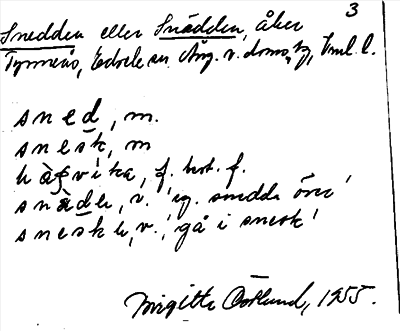 3
Snedden eller Snädden, åker
Tymnäs, Edsele sn. Ång. v. doms., Vml. l.
sned, m.
snesk, m
hàgvika, f. best. f.
snàde, v. 'eg. snedda över'
sneske, v., 'gå i snesk'
Birgitta Östlund, 1955.